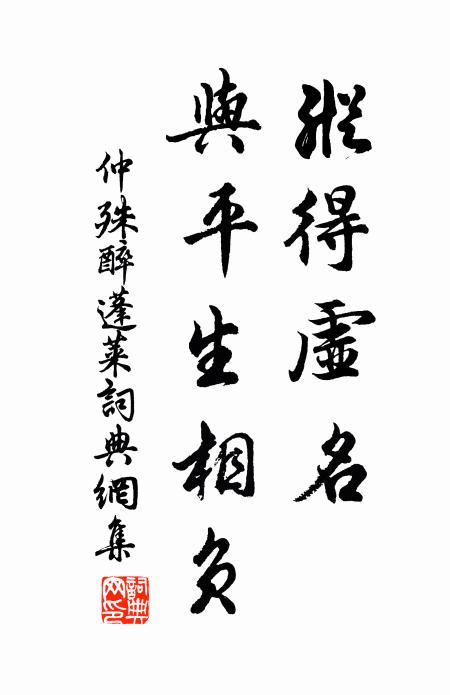 縱得虛名
與平生相負
仲殊醉蓬萊詞典網集
詞典网印